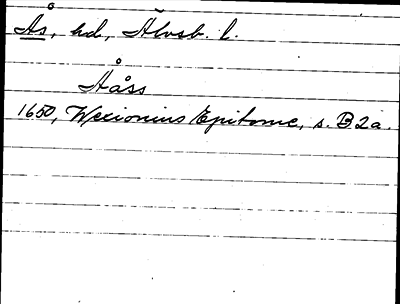 Ås, hd, Älvsb. l.
Aåss
1650, Wexionius Epitome, s. B2a.